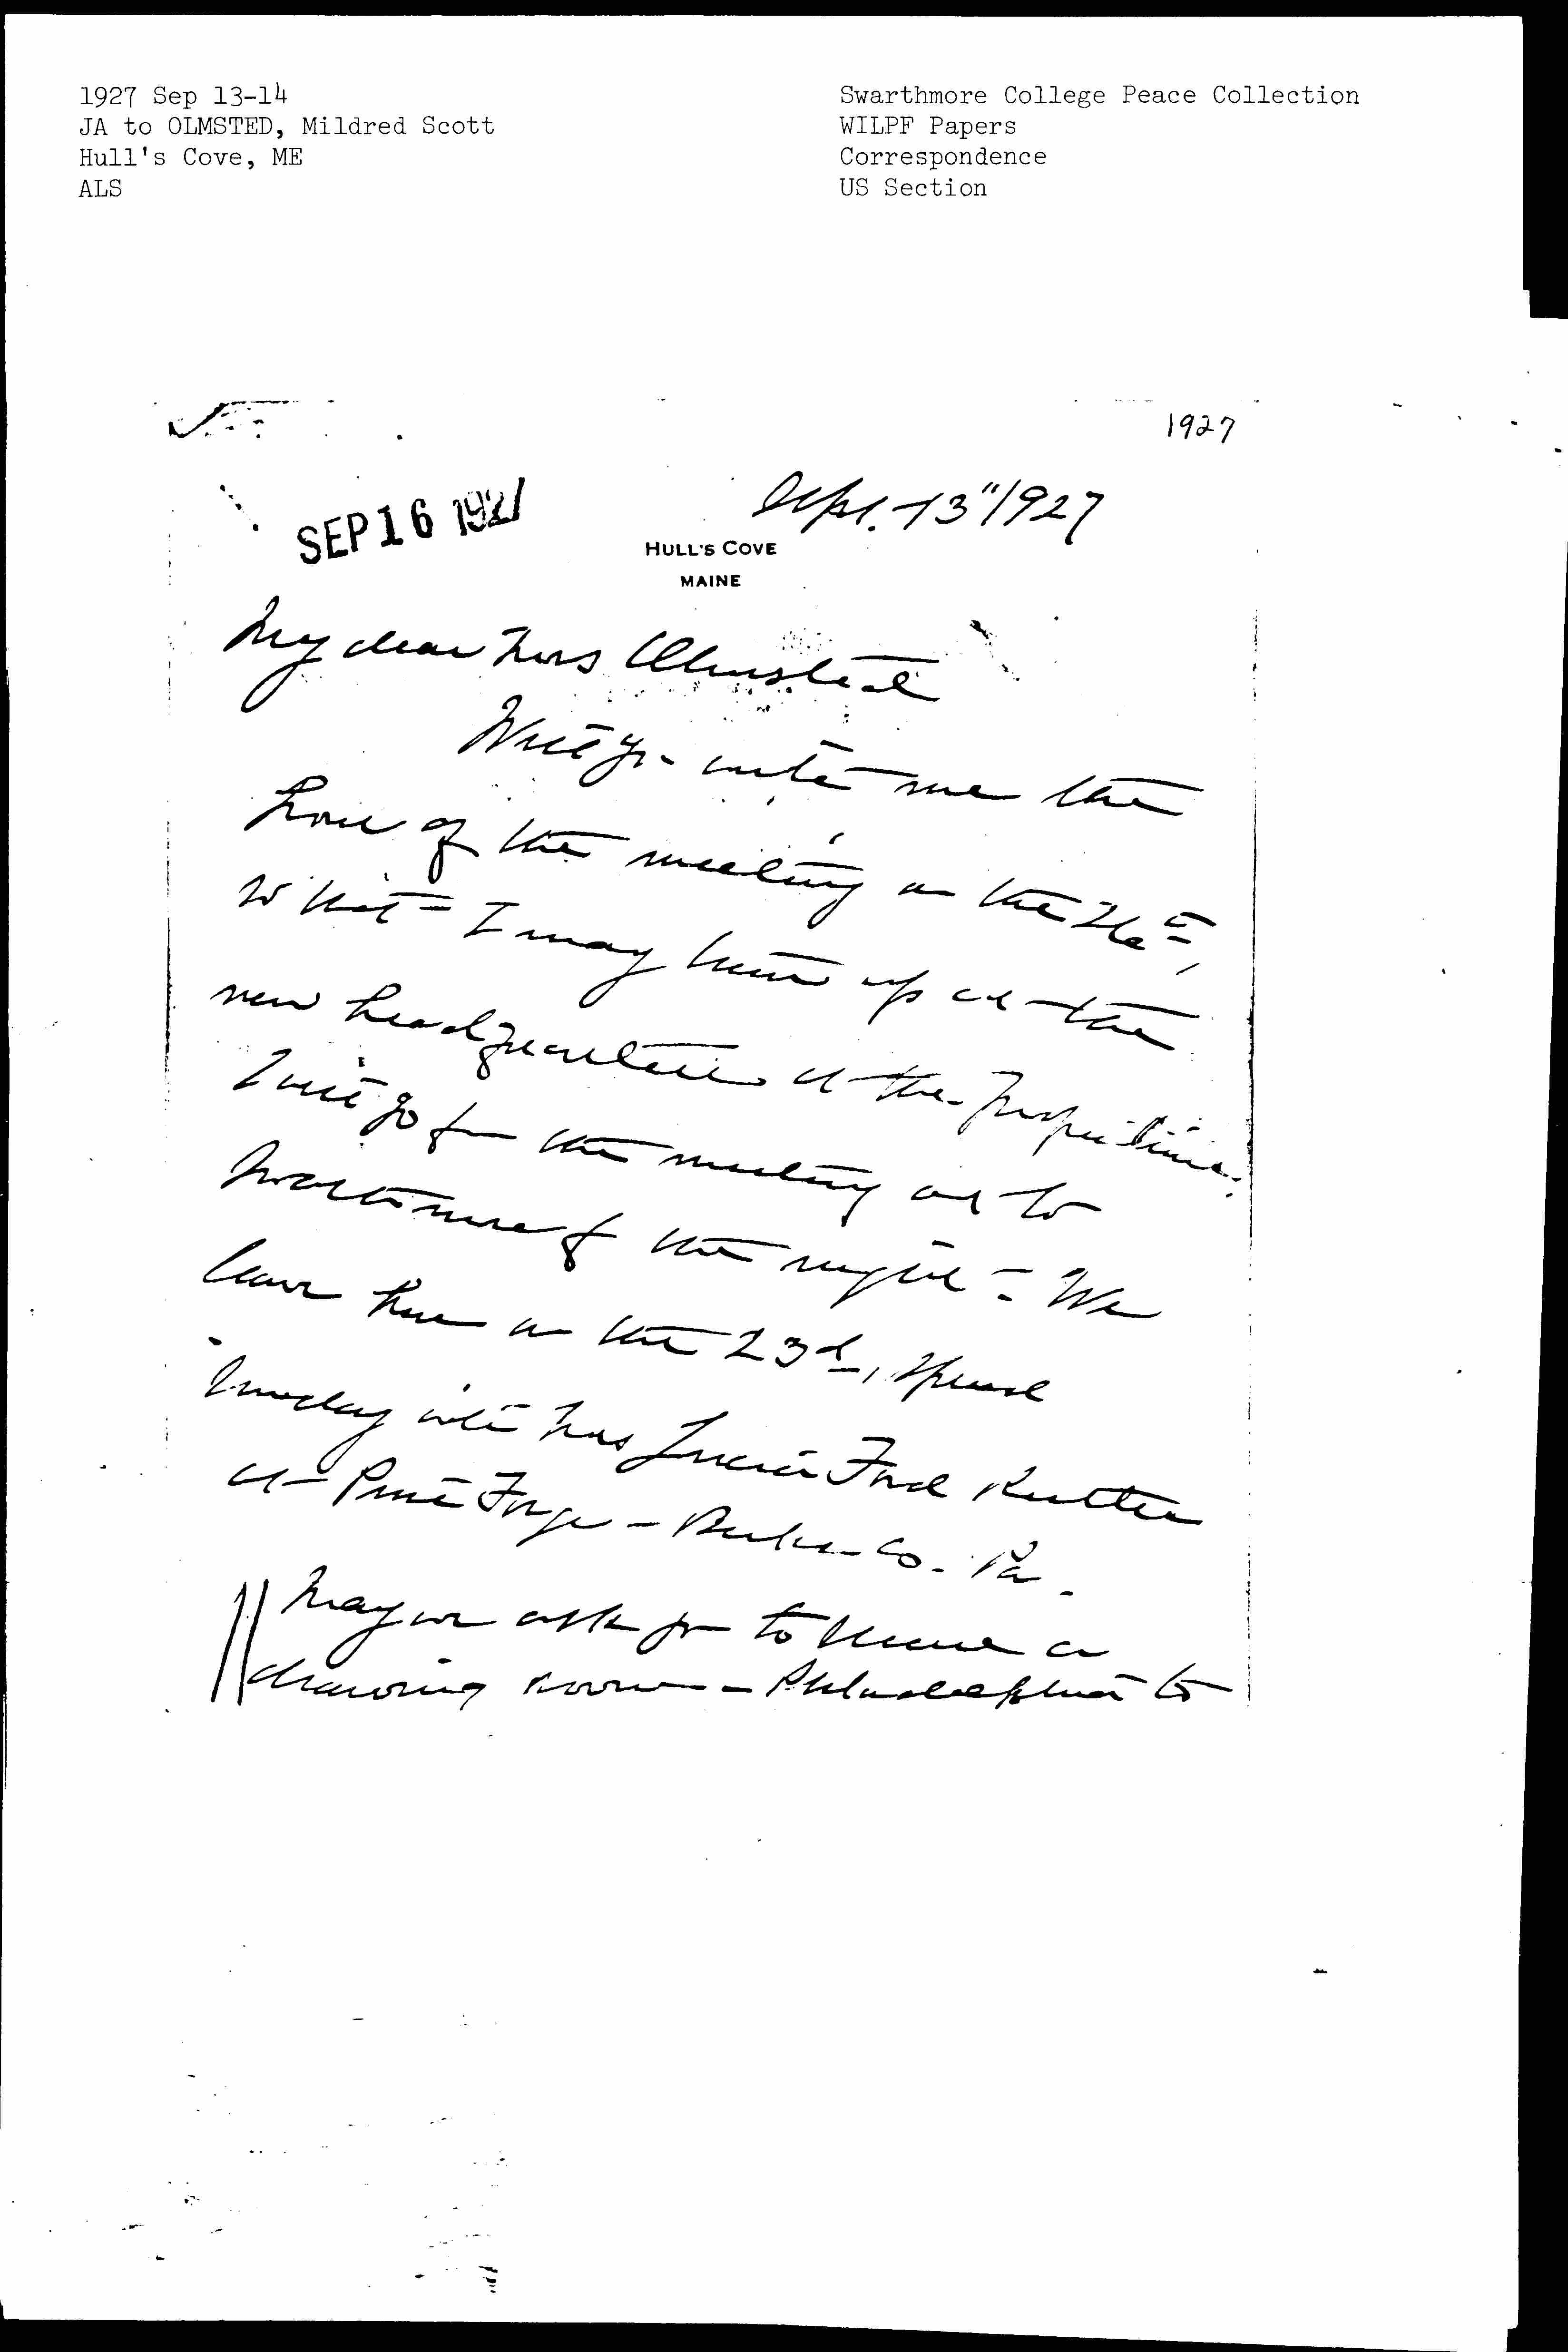 1927 Sep 13-14
JA to OLMSTED, Mildred Scott
Hull's Cove, ME
ALS
Swarthmore College Peace Collection
WILPF Papers
Correspondence
US Section
1927
SEP 16 1927
Sept. 13" 1927
HULL'S COVE
MAINE
My dear Mrs Olmsted
Will you write me the
hour of the meeting on the 26th,
so that I may turn up at the
new headquarters at the
I will go from the meeting out to
Swarthmore for the night - We
leave here on the 23d, spend
Sunday with Mrs Lucia Ford Rutter
at Pine Forge - Berks - Co. Pa.
May we ask you to secure a
drawing room - Philadelphia to